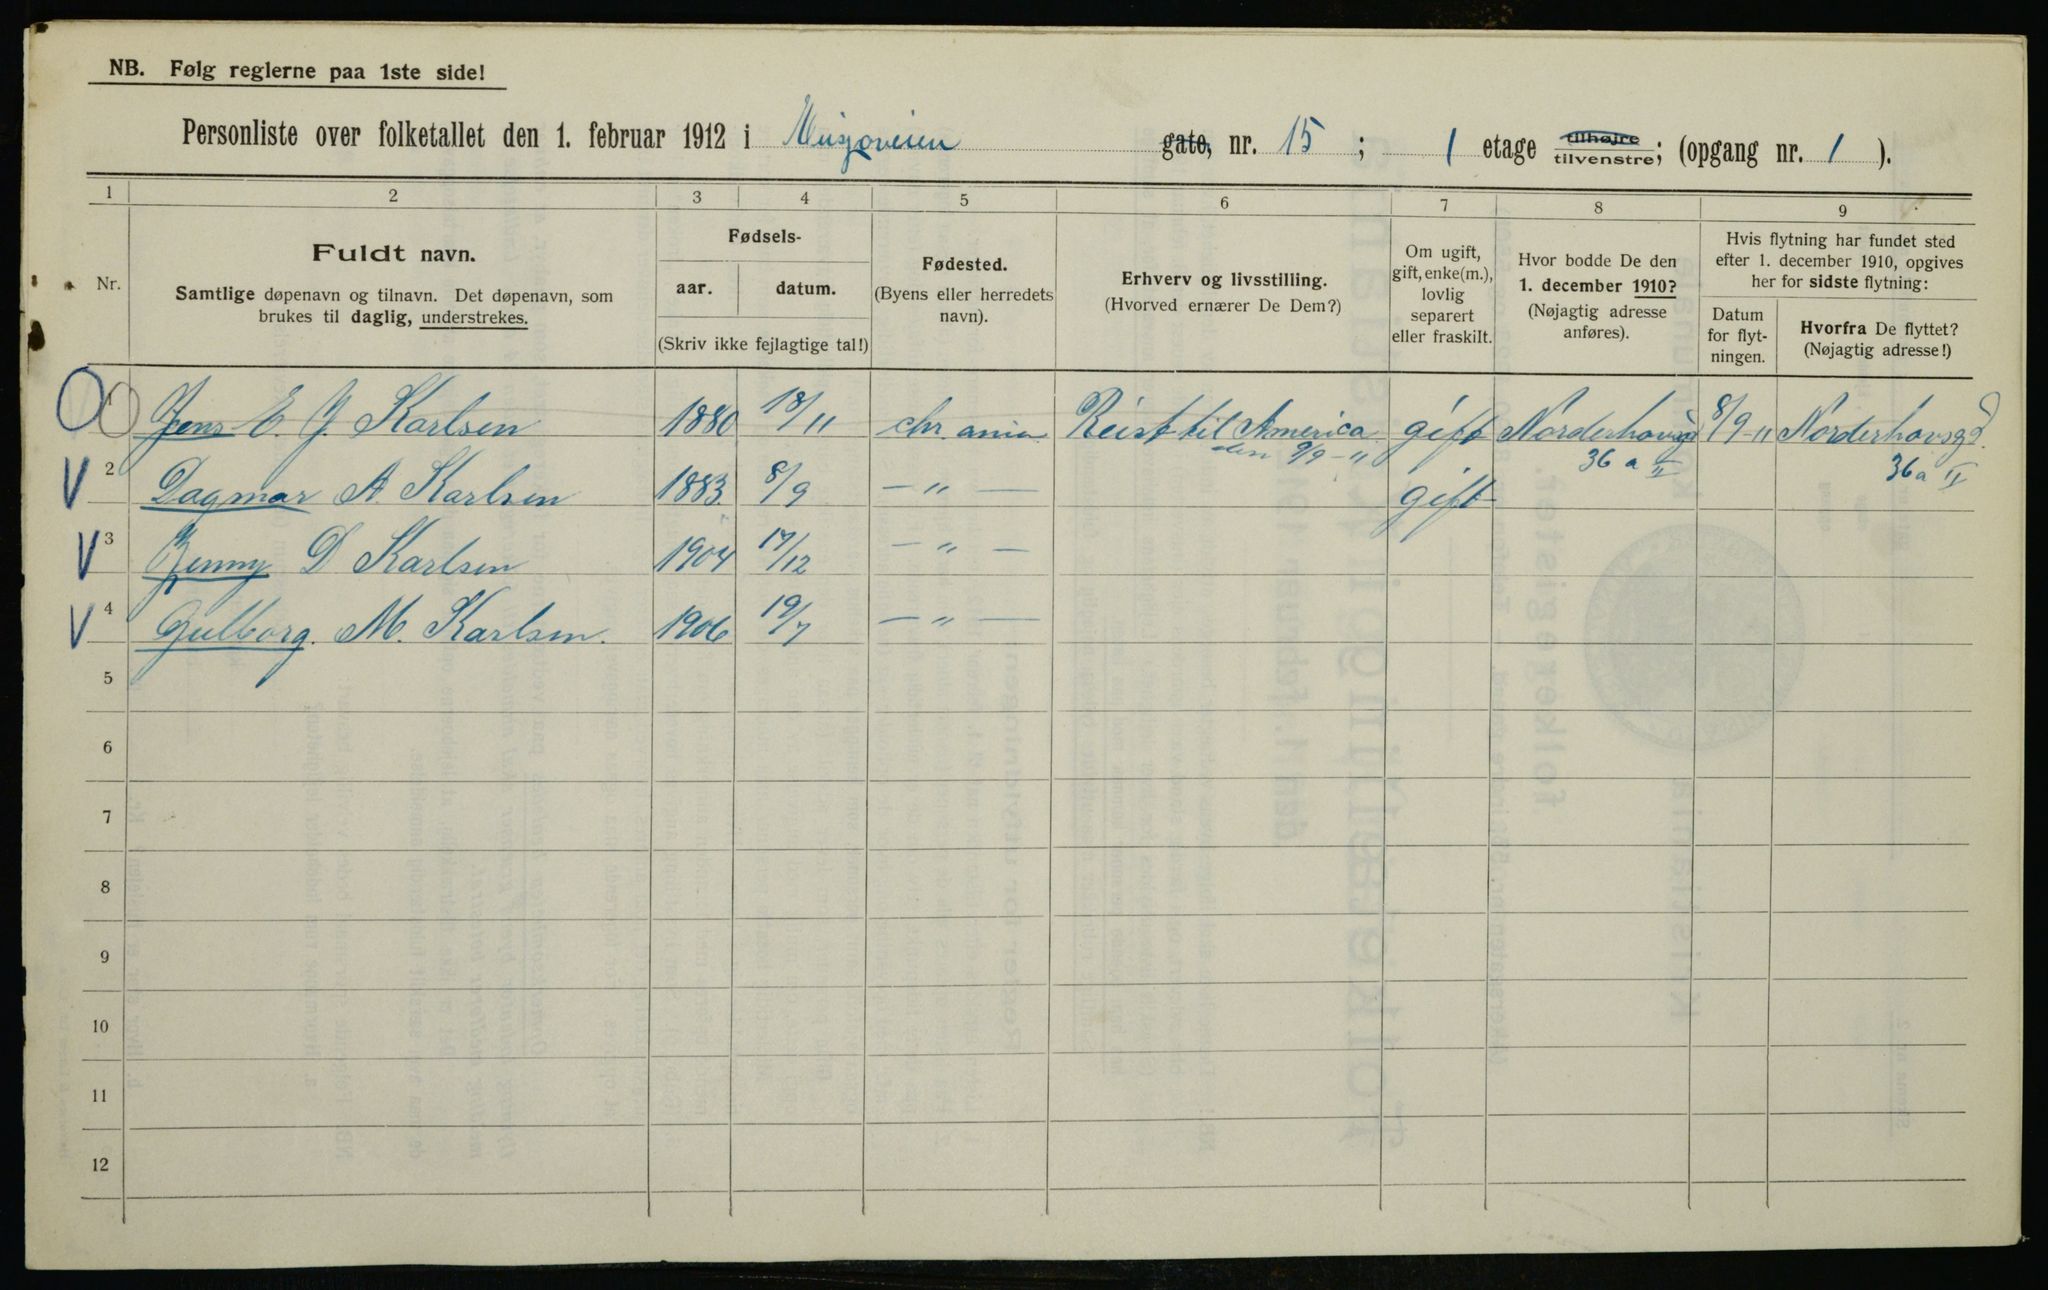 NB. Følg reglerne paa 1ste side!
Personliste over folketallet den 1. februar 1912 i gate, nr. 15 ; 1 etage tilhøjre tilvenstre; (opgang nr. 1 ).
1 2 3 4 5 6 7 8 9
Nr.
Fuldt navn.
Samtlige døpenavn og tilnavn. Det døpenavn, som
brukes til daglig, understrekes.
Fødsels-
aar. datum.
(Skriv ikke fejlagtige tal!)
Fødested.
(Byens eller herredets
navn).
Erhverv og livsstilling.
(Hvorved ernærer De Dem?)
Om ugift,
gift, enke(m.),
lovlig
separert
eller fraskilt.
Hvor bodde De den
1. december 1910?
(Nøjagtig adresse
anføres).
Hvis flytning har fundet sted
efter 1. december 1910, opgives
her for sidste flytning:
Datum
for flyt-
ningen.
Hvorfra De flyttet?
(Nøjagtig adresse!)
1 Jens E. J. Karlsen 1880 18/11 Chr.ania Reist til America gift Norderhovsgd 8/9-11 Norderhovsgd.
den 9/9-11 36 a II 36 a II
2 Dagmar A. Karlsen 1883. 8/9 — " — gift
3 Jenny D Karlsen 1904 17/12 — " —
4 Gulborg. M. Karlsen. 1906 19/7 — " —
5
6
7
8
9
10
11
12